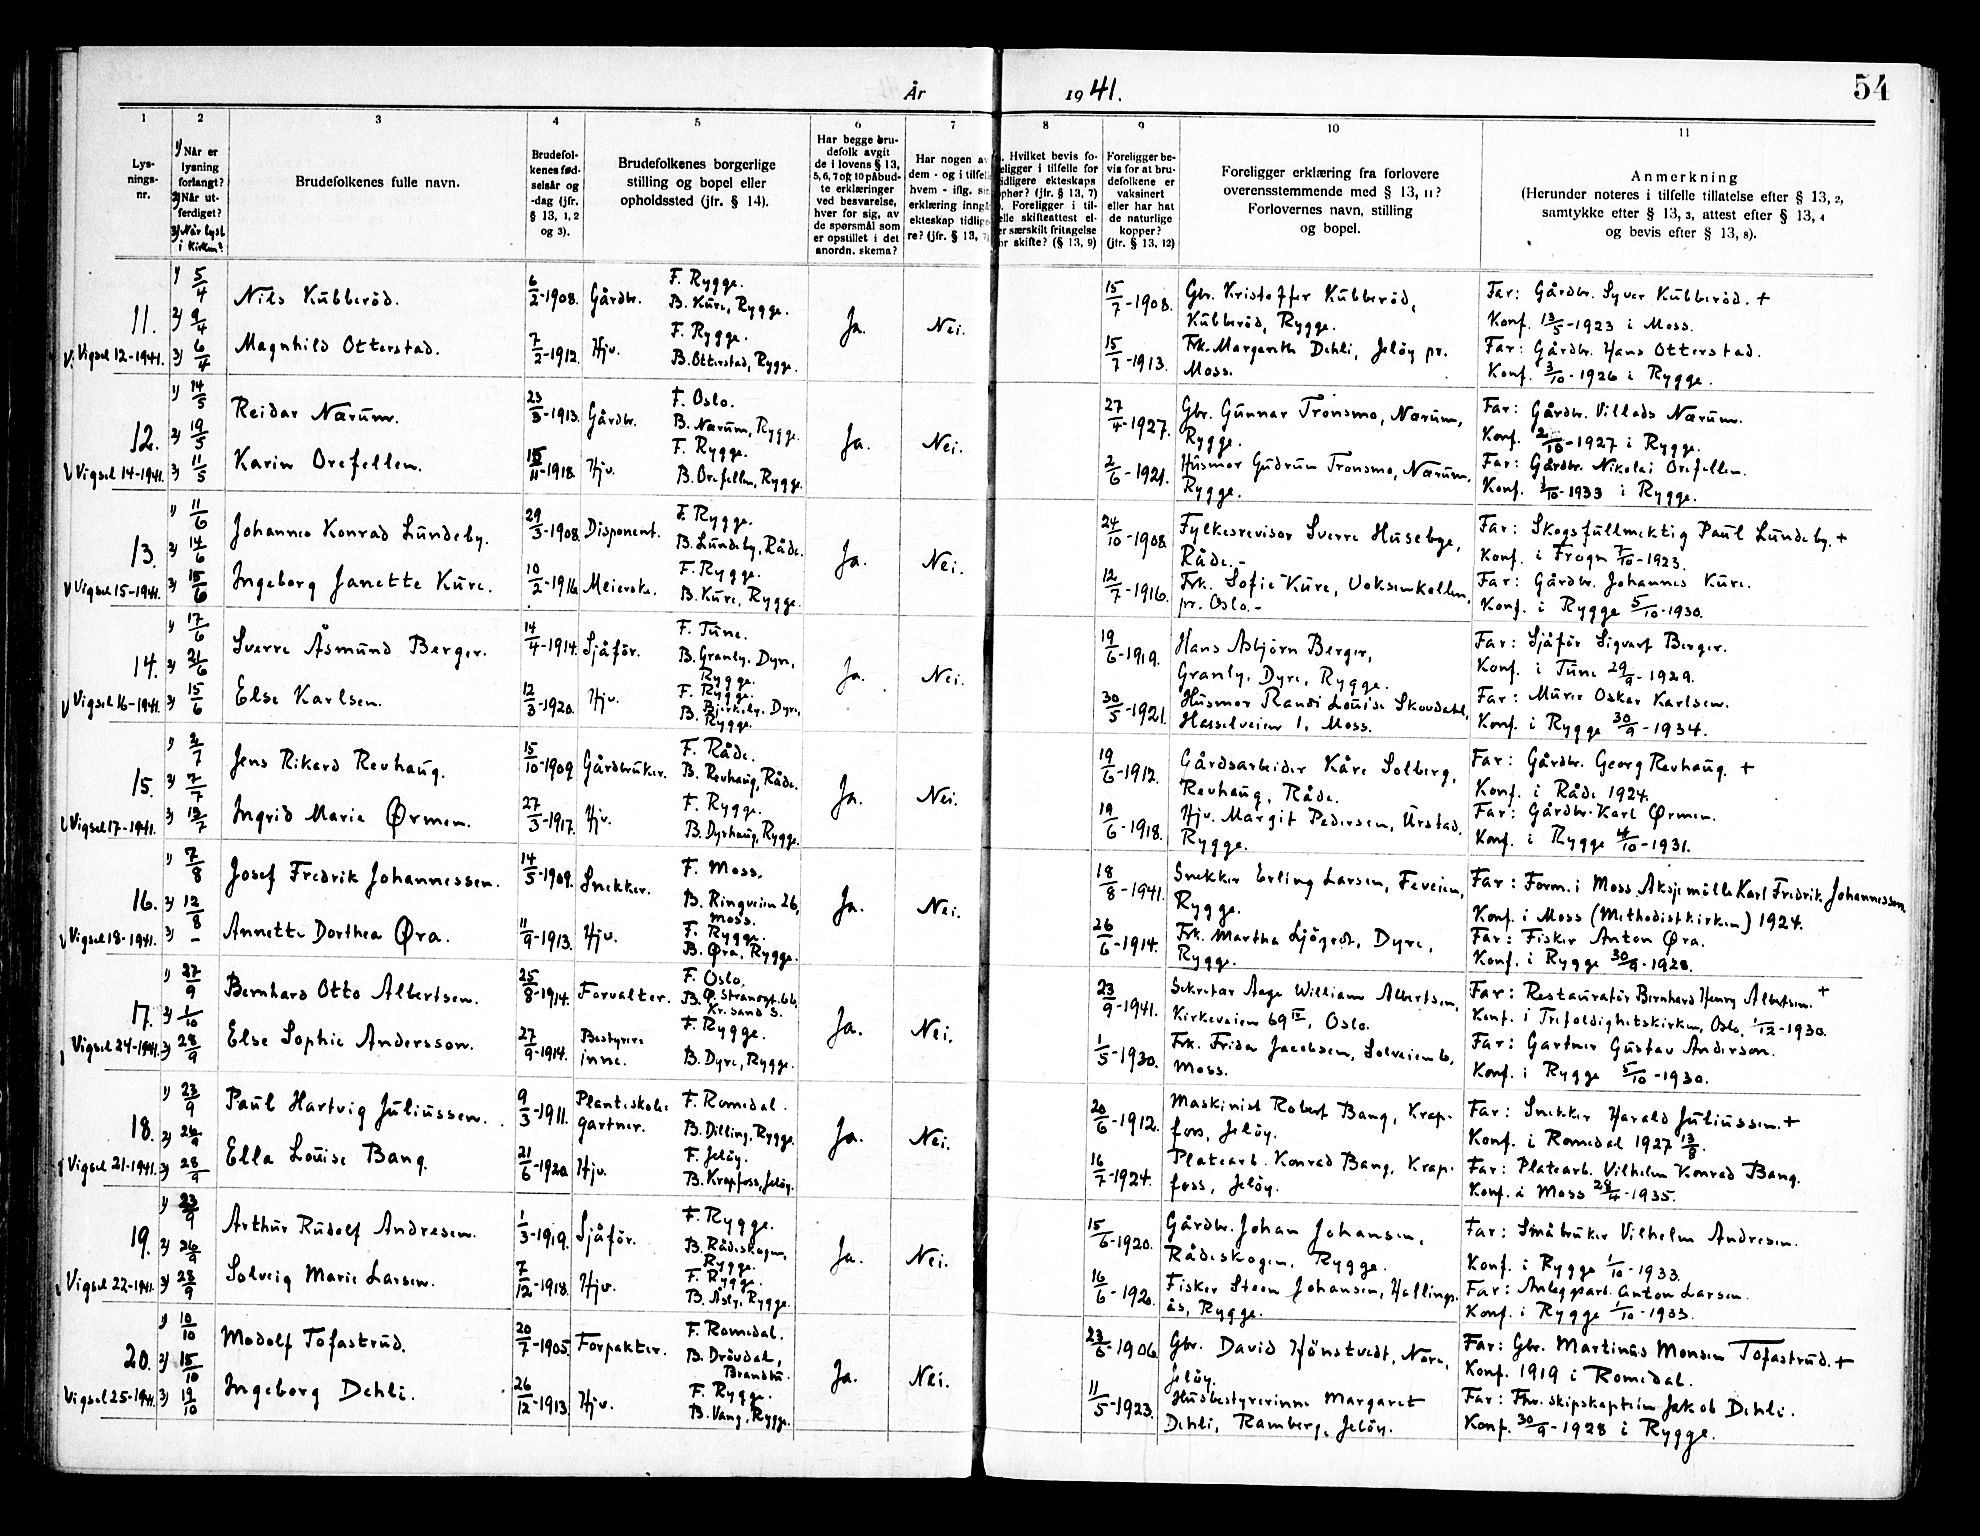 År 1941.
54
1
2
3
4
5
6
7
8
9
10
11
Lys-
nings-
nr.
1) Når er
lysning
forlangt?
2) Når ut-
ferdiget?
3) Når lyst
i kirken?
Brudefolkenes fulle navn.
Brudefol-
kenes fød-
selsår og
-dag (jfr.
§ 13, 1, 2
og 3).
Brudefolkenes borgerlige
stilling og bopel eller
opholdssted (jfr. § 14).
Har begge bru-
defolk avgit
de i lovens § 13,
5, 6, 7 og 10 påbud-
te erklæringer
ved besvarelse,
hver for sig, av
de spørsmål som
er opstillet i det
anordn. skema?
Har nogen av
dem - og i tilfelle
hvem - iflg. sin
erklæring inngå
ekteskap tidlige
re? (jfr. § 13, 7)
. Hvilket bevis fo-
eligger i tilfelle for
idligere ekteskaps
phør? (jfr. § 13, 7)
. Foreligger i til-
elle skifteattest el-
er særskilt fritagelse
or skifte? (§ 13, 9)
Foreligger be-
vis for at bru-
defolkene er
vaksinert
eller har hat
de naturlige
kopper?
(jfr. § 13, 12)
Foreligger erklæring fra forlovere
overensstemmende med § 13, 11?
Forlovernes navn, stilling
og bopel.
Anmerkning
(Herunder noteres i tilfelle tillatelse efter § 13, 2,
samtykke efter § 13, 3, attest efter § 13, 4
og bevis efter § 13, 8).
11.
Vigsel 12-1941.
1) 5/4
2) 9/4
3) 6/4
Nils Kubberød.
6/2-1908.
Gårdbr.
F. Rygge.
B. Kure, Rygge.
Magnhild Otterstad.
7/2-1912.
Hjv.
F. Rygge.
B. Otterstad, Rygge.
Ja.
Nei.
15/7-1908.
Gbr. Kristoffer Kubberød,
Kubberød, Rygge.
15/7-1913.
Frk. Margareth Dehli, Jeløy pr.
Moss.
Far: Gårdbr. Syver Kubberød. +
Konf. 13/5-1923 i Moss.
Far: Gårdbr. Hans Otterstad.
Konf. 3/10-1926 i Rygge.
12.
Vigsel 14-1941.
1) 14/5
2) 19/5
3) 11/5
Reidar Nærum.
23/3-1913.
Gårdbr.
F. Oslo.
B. Nærum, Rygge.
Karin Orefellen.
15/11-1918.
Hjv.
F. Rygge.
B. Orefellen, Rygge.
Ja.
Nei.
27/4-1927.
Gbr. Gunnar Tronsmo, Nærum,
Rygge.
2/6-1921.
Husmor Gudrun Tronsmo, Nærum,
Rygge.
Far: Gårdbr. Villads Nærum.
Konf. 2/10-1927 i Rygge.
Far: Gårdbr. Nikolai Orefellen.
Konf. 1/10-1933 i Rygge.
13.
Vigsel 15-1941.
1) 11/6
2) 14/6
3) 15/6
Johannes Konrad Lundeby.
29/3-1908.
Disponent.
F. Rygge.
B. Lundeby, Råde.
Ingeborg Janette Kure.
10/2-1916.
Meierske.
F. Rygge.
B. Kure, Rygge.
Ja.
Nei.
24/10-1908.
Fylkesrevisor Sverre Husebye,
Råde.-
12/7-1916.
Frk. Sofie Kure, Voksenkollen,
pr. Oslo.-
Far: Skogsfullmektig Paul Lundeby. +
Konf. i Frogn 7/10-1923.
Far: Gårdbr. Johannes Kure.
Konf. i Rygge 5/10-1930.
14.
Vigsel 16-1941.
1) 17/6
2) 21/6
3) 15/6
Sverre Åsmund Berger.
14/4-1914.
Sjåfør.
F. Tune.
B. Granly, Dyre,
Rygge.
Else Karlsen.
12/3-1920.
Hjv.
F. Rygge.
B. Bjerkely, Dyre,
Rygge.
Ja.
Nei.
19/6-1919.
Hans Asbjørn Berger,
Granly, Dyre, Rygge.
30/5-1921.
Husmor Randi Louise Skovdahl,
Hasselveien 1, Moss.
Far: Sjåfør Sigvart Berger.
Konf. i Tune 29/9-1929.
Far: Murer Oskar Karlsen.
Konf. i Rygge 30/9-1934.
15.
Vigsel 17-1941.
1) 2/7
2) 7/7
3) 13/7
Jens Rikard Revhaug.
15/10-1909.
Gårdbruker.
F. Råde.
B. Revhaug, Råde.
Ingrid Marie Ørmen.
27/3-1917.
Hjv.
F. Rygge.
B. Dyrhaug, Rygge.
Ja.
Nei.
19/6-1912.
Gårdsarbeider Kåre Solberg,
Revhaug, Råde.
19/6-1918.
Hjv. Margit Pedersen, Urstad,
Rygge.
Far: Gårdbr. Georg Revhaug. +
Konf. i Råde 1924.
Far: Gårdbr. Karl Ørmen.
Konf. i Rygge 4/10-1931.
16.
Vigsel 18-1941.
1) 7/8
2) 12/8
3) -
Josef Fredrik Johannessen.
14/5-1909.
Snekker.
F. Moss.
B. Ringveien 26,
Moss.
Annette Dorthea Øra.
11/9-1913.
Hjv.
F. Rygge.
B. Øra, Rygge.
Ja.
Nei.
18/8-1941.
Snekker Erling Larsen, Feveien,
Rygge.
26/6-1914.
Frk. Martha Ljøgodt, Dyre,
Rygge.
Far: Form. i Moss Aksjemølle Karl Fredrik Johannessen
Konf. i Moss (Methodistkirken) 1924.
Far: Fisker Anton Øra.
Konf. i Rygge 30/9-1928.
17.
Vigsel 24-1941.
1) 27/9
2) 1/10
3) 28/9
Bernhard Otto Albertsen.
25/8-1914.
Forvalter.
F. Oslo.
B. Ø. Strandgt. 66,
Kr. sand S.
Else Sophie Andersson.
27/9-1914.
Bestyrer-
inne.
F. Rygge.
B. Dyre, Rygge.
Ja.
Nei.
23/9-1941.
Sekretær Aage William Albertsen,
Kirkeveien 69 IV, Oslo.
1/5-1930.
Frk. Frida Jacobsen, Solveien 6,
Moss.
Far: Restauratør Bernhard Henry Albertsen. +
Konf. i Trefoldighetskirken, Oslo, 1/12-1930.
Far: Gartner Gustav Anderson.
Konf. i Rygge 5/10-1930.
18.
Vigsel 21-1941.
1) 23/9
2) 26/9
3) 28/9
Paul Hartvig Juliussen.
9/3-1911.
Planteskole-
gartner.
F. Romedal.
B. Dilling, Rygge.
Ella Louise Bang.
21/6-1920.
Hjv.
F. Jeløy.
B. Krapfoss, Jeløy.
Ja.
Nei.
20/6-1912.
Maskinist Robert Bang, Krap-
foss, Jeløy.
16/7-1924.
Platearb. Konrad Bang, Krap-
foss, Jeløy.
Far: Snekker Harald Juliussen. +
Konf. i Romedal 1927 13/8.
Far: Platearb. Vilhelm Konrad Bang.
Konf. i Moss 28/4-1935.
19.
Vigsel 22-1941.
1) 23/9
2) 26/9
3) 28/9
Arthur Rudolf Andresen.
1/3-1919.
Sjåfør.
F. Rygge.
B. Rådeskogen,
Rygge.
Solveig Marie Larsen.
7/12-1918.
Hjv.
F. Rygge.
B. Åsly, Rygge.
Ja.
Nei.
15/6-1920.
Gårdbr. Johan Johansen,
Rådeskogen, Rygge.
16/6-1920.
Fisker Steen Johansen, Hallings-
ås, Rygge.
Far: Småbruker Vilhelm Andresen.
Konf. i Rygge 1/10-1933.
Far: Anleggsarb. Anton Larsen.
Konf. i Rygge 1/10-1933.
20.
Vigsel 25-1941.
1) 10/10
2) 15/10
3) 19/10
Modolf Tofastrud.
20/7-1905.
Forpakter.
F. Romedal.
B. Drøvdal,
Brandbu.
Ingeborg Dehli.
26/12-1913.
Hjv.
F. Rygge.
B. Vang, Rygge.
Ja.
Nei.
23/6-1906.
Gbr. David Hønstvedt, Nore,
Jeløy.
11/5-1923.
Husbestyrerinne Margaret
Dehli, Ramberg, Jeløy.
Far: Gbr. Martinus Monsen Tofastrud. +
Konf. 1919 i Romedal.
Far: Fhv. skipskaptein Jakob Dehli.
Konf. 30/9-1928 i Rygge.